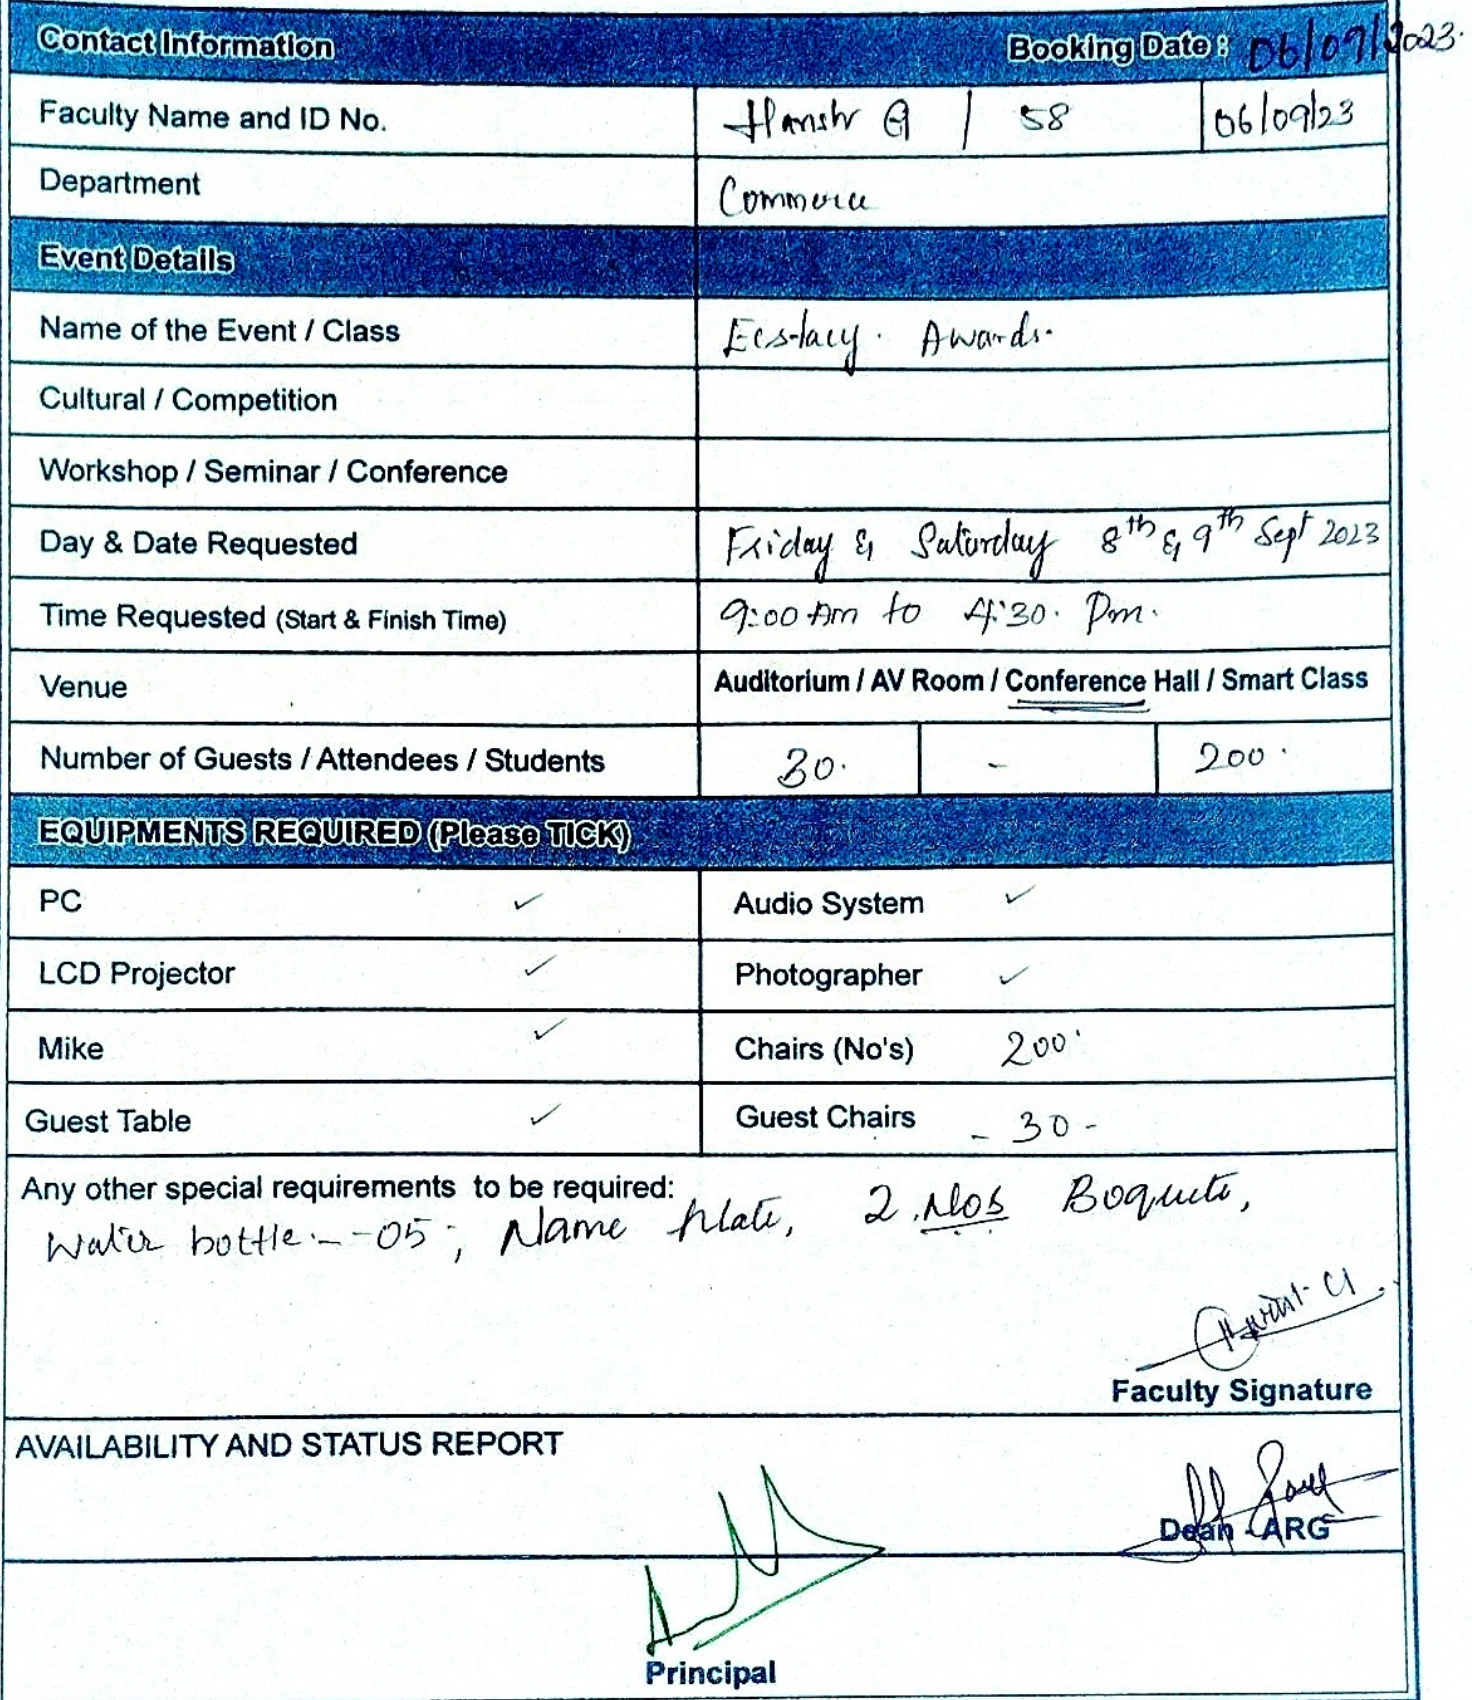 Contact Information Booking Date : 06/09/2023.
Faculty Name and ID No. G / 58 06/09/23
Department Commerce
Event Details
Name of the Event / Class Ecstacy. Awards.
Cultural / Competition
Workshop / Seminar / Conference
Day & Date Requested Friday & Saturday 8th & 9th Sept 2023
Time Requested (Start & Finish Time) 9:00 Am to 4:30. Pm.
Venue Auditorium / AV Room / Conference Hall / Smart Class
Number of Guests / Attendees / Students 30. - 200.
EQUIPMENTS REQUIRED (Please TICK)
PC ✓ Audio System ✓
LCD Projector ✓ Photographer ✓
Mike ✓ Chairs (No's) 200.
Guest Table ✓ Guest Chairs - 30 -
Any other special requirements to be required:
Water bottle.--05; Name plate, 2.Nos Boquets,
Faculty Signature
AVAILABILITY AND STATUS REPORT
Dean - ARG
Principal